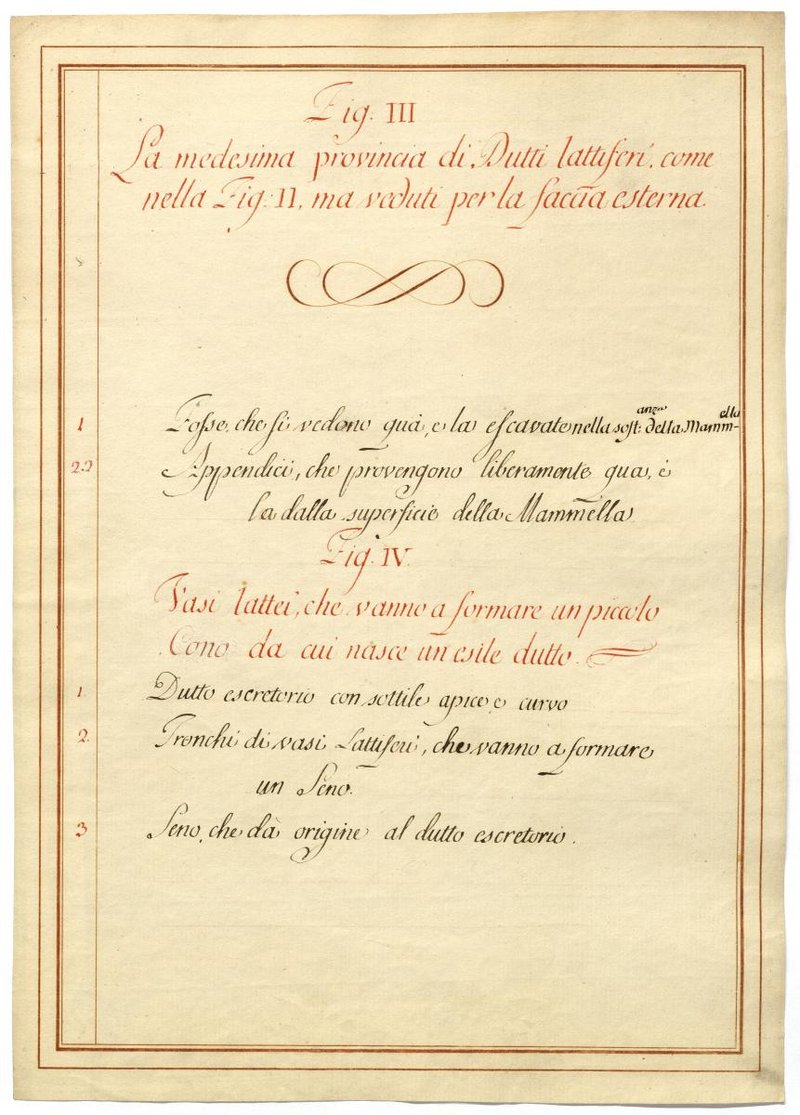 Fig. III
La medesima provincia di Dutti lattiferi, come
nella Fig. II, ma veduti per la faccia esterna.
1 Fosse, che si vedono quà, e la escavate nella sost:anza della Mamm-ella
2.2 Appendici, che provengono liberamente qua, e
la dalla superficie della Mammella
Fig. IV.
Vasi lattei, che vanno a formare un piccolo
Cono da cui nasce un esile dutto.
1. Dutto escretorio con sottile apice e curvo
2. Tronchi di vasi Lattiferi, che vanno a formare
un Seno.
3 Seno, che dà origine al dutto escretorio.